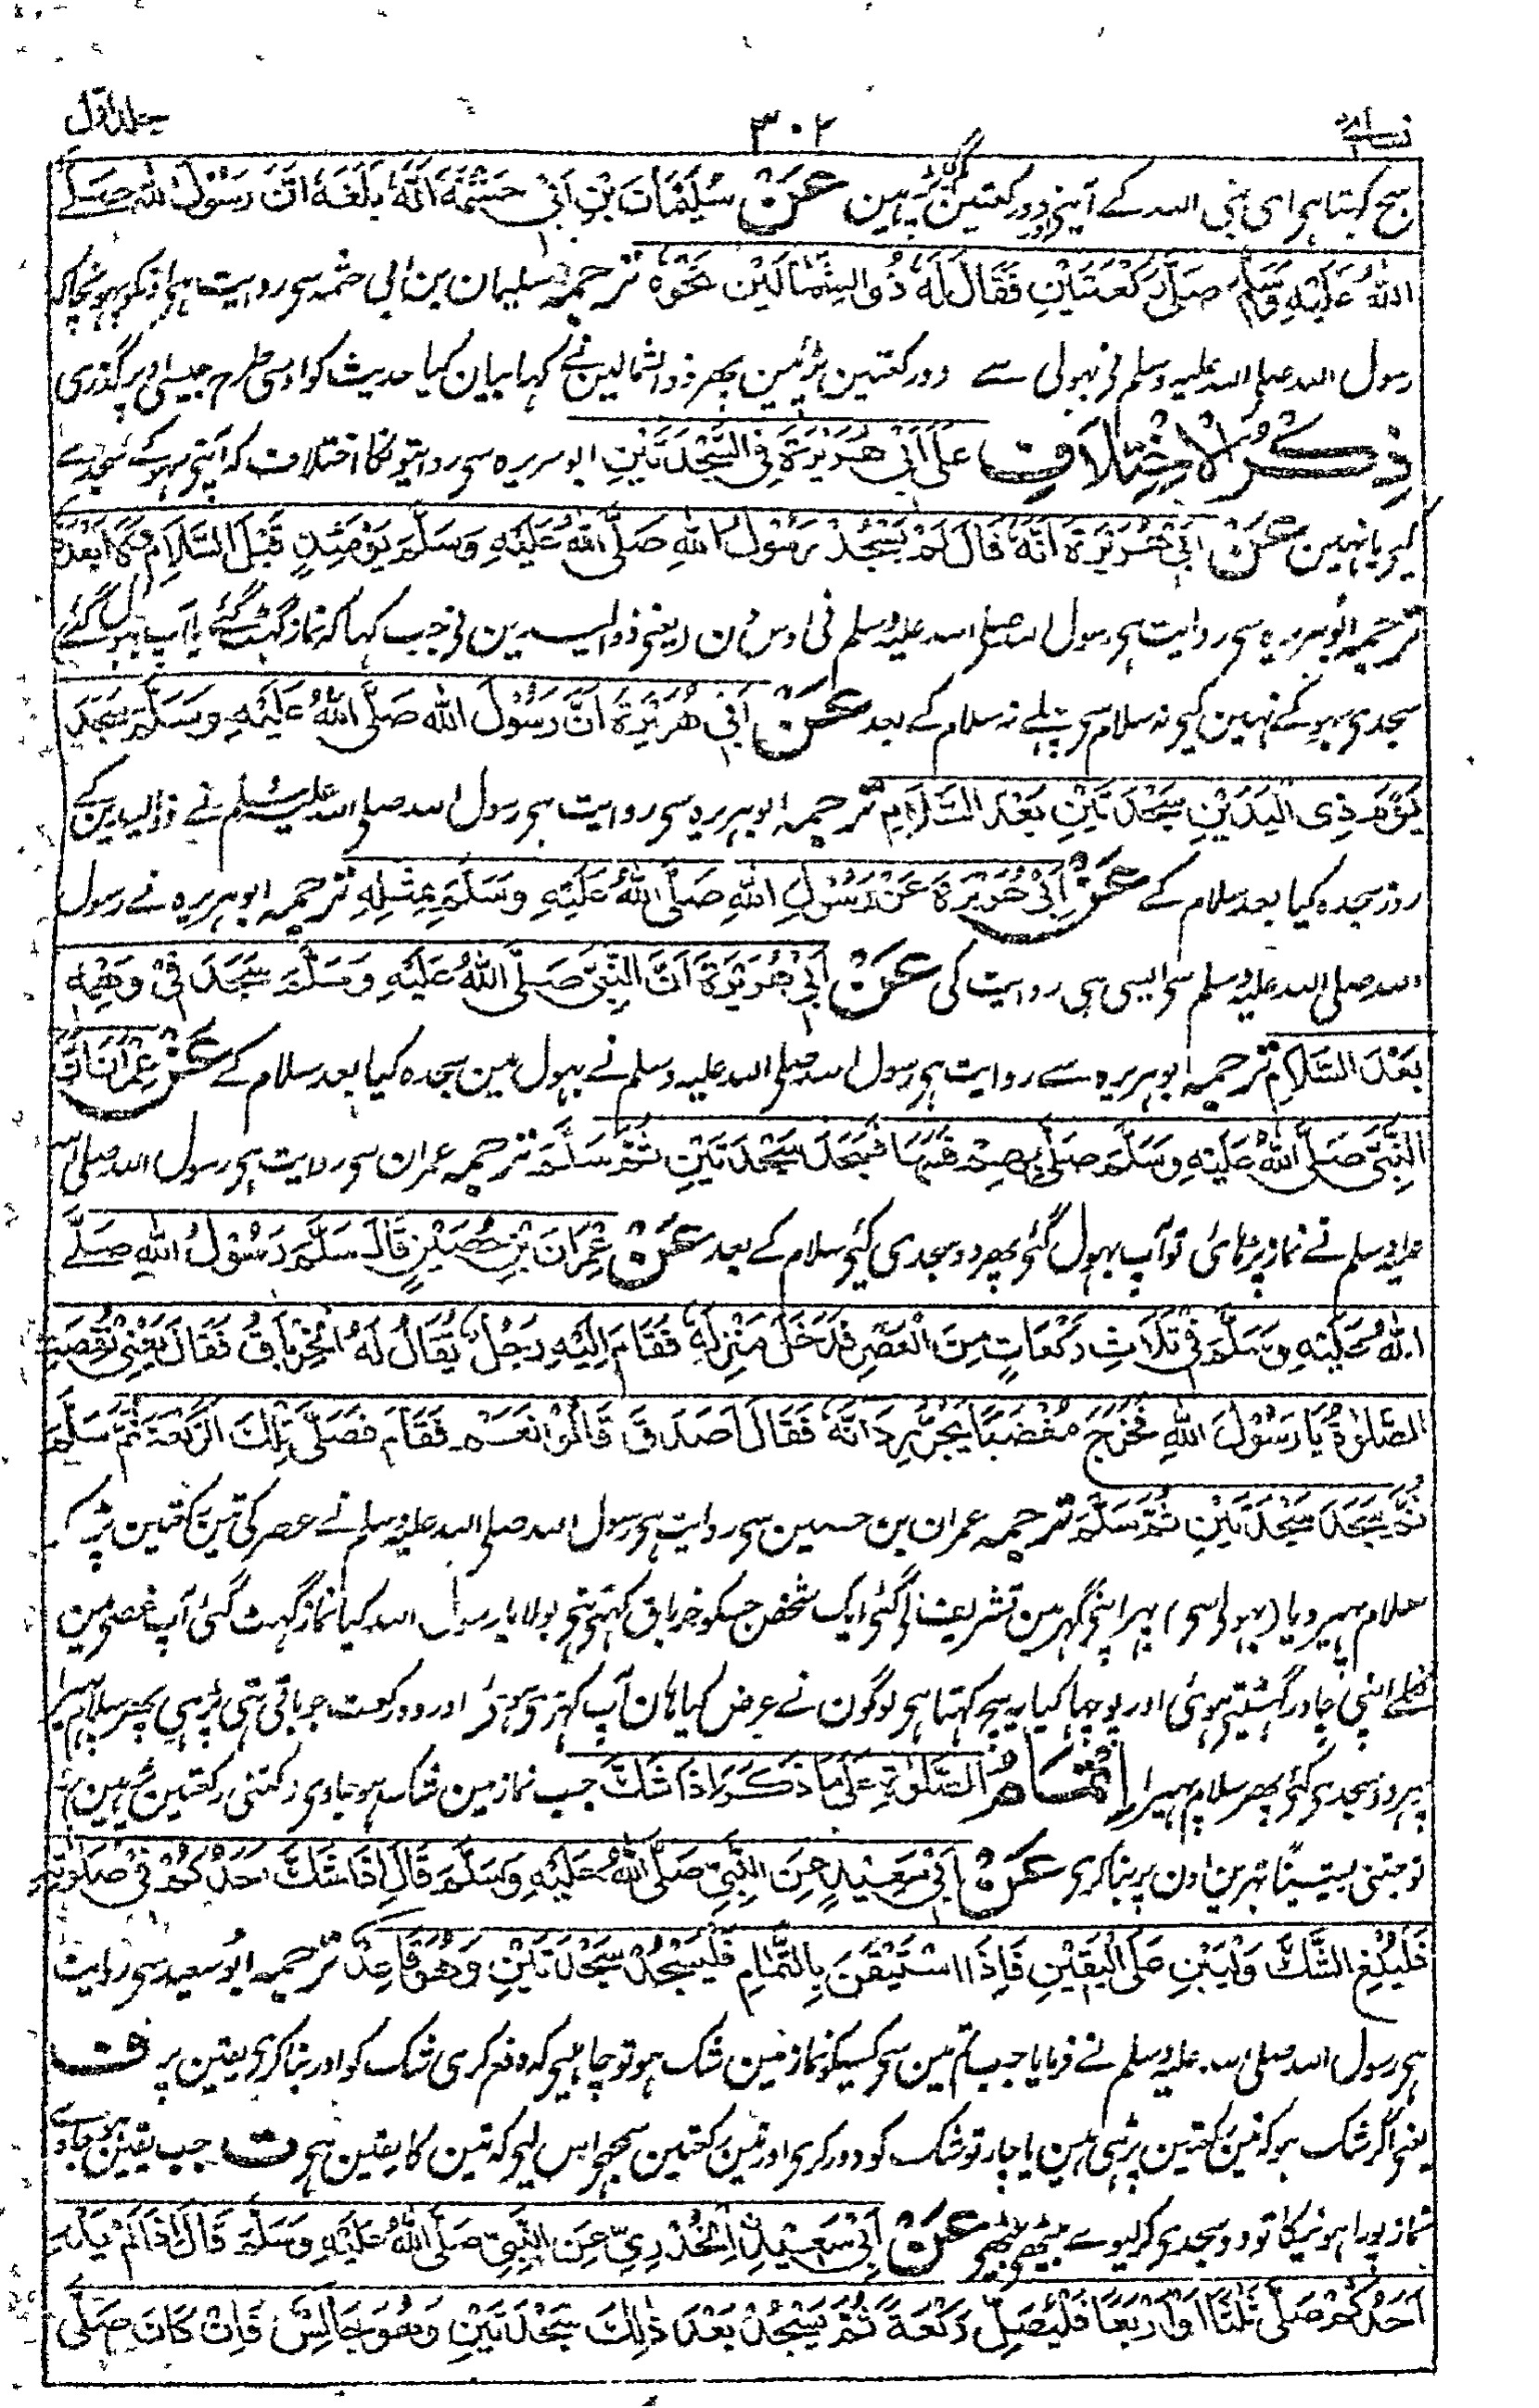 نسائی ۳۰۲ جلد اول
سچ کہتا ہی ای نبی اللہ کے آپنے دو رکعتین پڑہین عَنْ سُلَيْمَانَ بْنِ اَبِيْ حَثْمَةَ اَنَّهٗ بَلَغَهٗ اَنَّ رَسُوْلَ اللهِ صَلَّے
اللهُ عَلَيْهِ وَسَلَّمَ صَلّٰى رَكْعَتَيْنِ فَقَالَ لَهٗ ذُو الشِّمَالَيْنِ نَحْوَهٗ ترجمہ سلیمان بن ابی حثمہ سی روایت ہی اونکو پہونچا کہ
رسول اللہ صلی اللہ علیہ وسلم نی بہولی سے دو رکعتین پڑہین پھر ذو الشمالین نے کہا بیان کیا حدیث کو اوسی طرح جیسی اوپر گذری
ذِكْرُ الْاِخْتِلَافِ عَلٰى اَبِيْ هُرَيْرَةَ فِي السَّجْدَتَيْنِ ابو ہریرہ سی روایتونکا اختلاف کہ آپنی سہو کے سجدے
کیی یا نہین عَنْ اَبِيْ هُرَيْرَةَ اَنَّهٗ قَالَ لَمْ يَسْجُدْ رَسُوْلُ اللهِ صَلَّى اللهُ عَلَيْهِ وَسَلَّمَ يَوْمَئِذٍ قَبْلَ السَّلَامِ وَلَا بَعْدَهٗ
ترجمہ ابو ہریرہ سی روایت ہی رسول اللہ صلی اللہ علیہ وسلم نی اوس دن (یعنی ذو الیدین نی جب کہا کہ نماز گہٹ گئے یا آپ بہول گئے
سجدی سہو کے نہین کیی نہ سلام سی پہلے نہ سلام کے بعد عَنْ اَبِيْ هُرَيْرَةَ اَنَّ رَسُوْلَ اللهِ صَلَّى اللهُ عَلَيْهِ وَسَلَّمَ سَجَدَ
يَوْمَ ذِي الْيَدَيْنِ سَجْدَتَيْنِ بَعْدَ السَّلَامِ ترجمہ ابو ہریرہ سی روایت ہی رسول اللہ صلی اللہ علیہ وسلم نے ذو الیدین کے
روز سجدہ کیا بعد سلام کے عَنْ اَبِيْ هُرَيْرَةَ عَنْ رَسُوْلِ اللهِ صَلَّى اللهُ عَلَيْهِ وَسَلَّمَ بِمِثْلِهٖ ترجمہ ابو ہریرہ نے رسول
اللہ صلی اللہ علیہ وسلم سی ایسی ہی روایت کی عَنْ اَبِيْ هُرَيْرَةَ اَنَّ النَّبِيَّ صَلَّى اللهُ عَلَيْهِ وَسَلَّمَ سَجَدَ فِيْ وَهْمِهٖ
بَعْدَ السَّلَامِ ترجمہ ابو ہریرہ سے روایت ہی رسول اللہ صلی اللہ علیہ وسلم نے بہول مین سجدہ کیا بعد سلام کے عَنْ عِمْرَانَ اَنَّ
النَّبِيَّ صَلَّى اللهُ عَلَيْهِ وَسَلَّمَ صَلّٰى بِهِمْ فَسَهَا فَسَجَدَ سَجْدَتَيْنِ ثُمَّ سَلَّمَ ترجمہ عمران سی روایت ہی رسول اللہ صلی اللہ
علیہ وسلم نے نماز پڑہائی تو آپ بہول گئی پھر دو سجدی کیئی سلام کے بعد عَنْ عِمْرَانَ بْنِ حُصَيْنٍ قَالَ سَلَّمَ رَسُوْلُ اللهِ صَلَّے
اللهُ عَلَيْهِ وَسَلَّمَ فِيْ ثَلَاثِ رَكْعَاتٍ مِنَ الْعَصْرِ فَدَخَلَ مَنْزِلَهٗ فَقَامَ اِلَيْهِ رَجُلٌ يُقَالُ لَهُ الْخِرْبَاقُ فَقَالَ يَعْنِيْ نُقِصَتِ
الصَّلٰوةُ يَا رَسُوْلَ اللهِ فَخَرَجَ مُغْضَبًا يَجُرُّ رِدَائَهٗ فَقَالَ اَصَدَقَ قَالُوْا نَعَمْ فَقَامَ فَصَلّٰى تِلْكَ الرَّكْعَةَ ثُمَّ سَلَّمَ
ثُمَّ سَجَدَ سَجْدَتَيْنِ ثُمَّ سَلَّمَ ترجمہ عمران بن حصین سی روایت ہی رسول اللہ صلی اللہ علیہ وسلم نے عصر کی تین رکعتین پڑہ کر
سلام پہیر دیا (بہولی سی) پہر اپنی گہر مین تشریف لی گئی ایک شخص جسکو خرباق کہتی تہی بولا یا رسول اللہ کیا نماز گہٹ گئی آپ غصی مین
نکلے اپنی چادر گہسیٹتی ہوئی اور پوچہا کیا یہ سچ کہتا ہی لوگون نے عرض کیا ہان آپ کہڑی ہوئی اور دو رکعت جو باقی تہی پڑہی پھر سلام پہیرا
پہر دو سجدی کئی پھر سلام پہیرا اِتْمَامُ الصَّلٰوةِ عَلٰى مَا ذَكَرَ اِذَا شَكَّ جب نماز مین شک ہو جاوی کتنی رکعتین پڑہین ہین
تو جتنی یقینًا پڑہین اون پر بنا کری عَنْ اَبِيْ سَعِيْدٍ عَنِ النَّبِيِّ صَلَّى اللهُ عَلَيْهِ وَسَلَّمَ قَالَ اِذَا شَكَّ اَحَدُكُمْ فِيْ صَلٰوتِهٖ
فَلْيُلْغِ الشَّكَّ وَلْيَبْنِ عَلَى الْيَقِيْنِ فَاِذَا اسْتَيْقَنَ بِالتَّمَامِ فَلْيَسْجُدْ سَجْدَتَيْنِ وَهُوَ قَاعِدٌ ترجمہ ابو سعید سی روایت
ہی رسول اللہ صلی اللہ علیہ وسلم نے فرمایا جب تم مین سی کسیکو نماز مین شک ہو تو چاہیی کہ دفع کری شک کو اور بنا کری یقین پر ف
یعنی اگر شک ہو کہ تین رکعتین پڑہی ہین یا چار تو شک کو دور کری اور تین رکعتین سمجہی اس لیی کہ تین کا یقین ہی ت جب یقین ہو جاوے
نماز پورا ہونیکا تو دو سجدی کر لیوے بیٹھی بیٹھی عَنْ اَبِيْ سَعِيْدٍ الْخُدْرِيِّ عَنِ النَّبِيِّ صَلَّى اللهُ عَلَيْهِ وَسَلَّمَ قَالَ اِذَا لَمْ يَدْرِ
اَحَدُكُمْ صَلّٰى ثَلٰثًا اَوْ اَرْبَعًا فَلْيُصَلِّ رَكْعَةً ثُمَّ يَسْجُدْ بَعْدَ ذٰلِكَ سَجْدَتَيْنِ وَهُوَ جَالِسٌ فَاِنْ كَانَ صَلّٰى